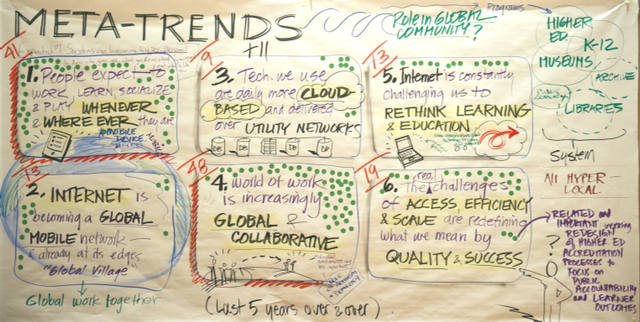 META-TRENDS
+11
41
1. People expect to
WORK, LEARN, SOCIALIZE
& PLAY WHENEVER
& WHERE EVER they are
MOBILE
DEVICE
9
3. Tech. we use
are daily more CLOUD-
BASED and delivered
over UTILITY NETWORKS
DB
DB
DB
DB
13
5. Internet is constantly
challenging us to
RETHINK LEARNING
& EDUCATION
13
2. INTERNET is
becoming a GLOBAL
MOBILE network
& already at its edges
"Global Village"
Global work together
48
4. World of work
is increasingly
GLOBAL &
COLLABORATIVE
(Last 5 years over & over)
19
6. The real challenges
of ACCESS, EFFICIENCY
& SCALE are redefining
what we mean by
QUALITY & SUCCESS
Role in GLOBAL
COMMUNITY?
Programs
HIGHER
ED
K-12
MUSEUMS
ARCHIVE
LIBRARIES
System
All HYPER-
LOCAL
RELATED and
IMPORTANT
REDESIGN
of HIGHER ED
ACCREDITATION
PROCESSES to
FOCUS on
PUBLIC
ACCOUNTABILITY
and LEARNER
OUTCOMES
?